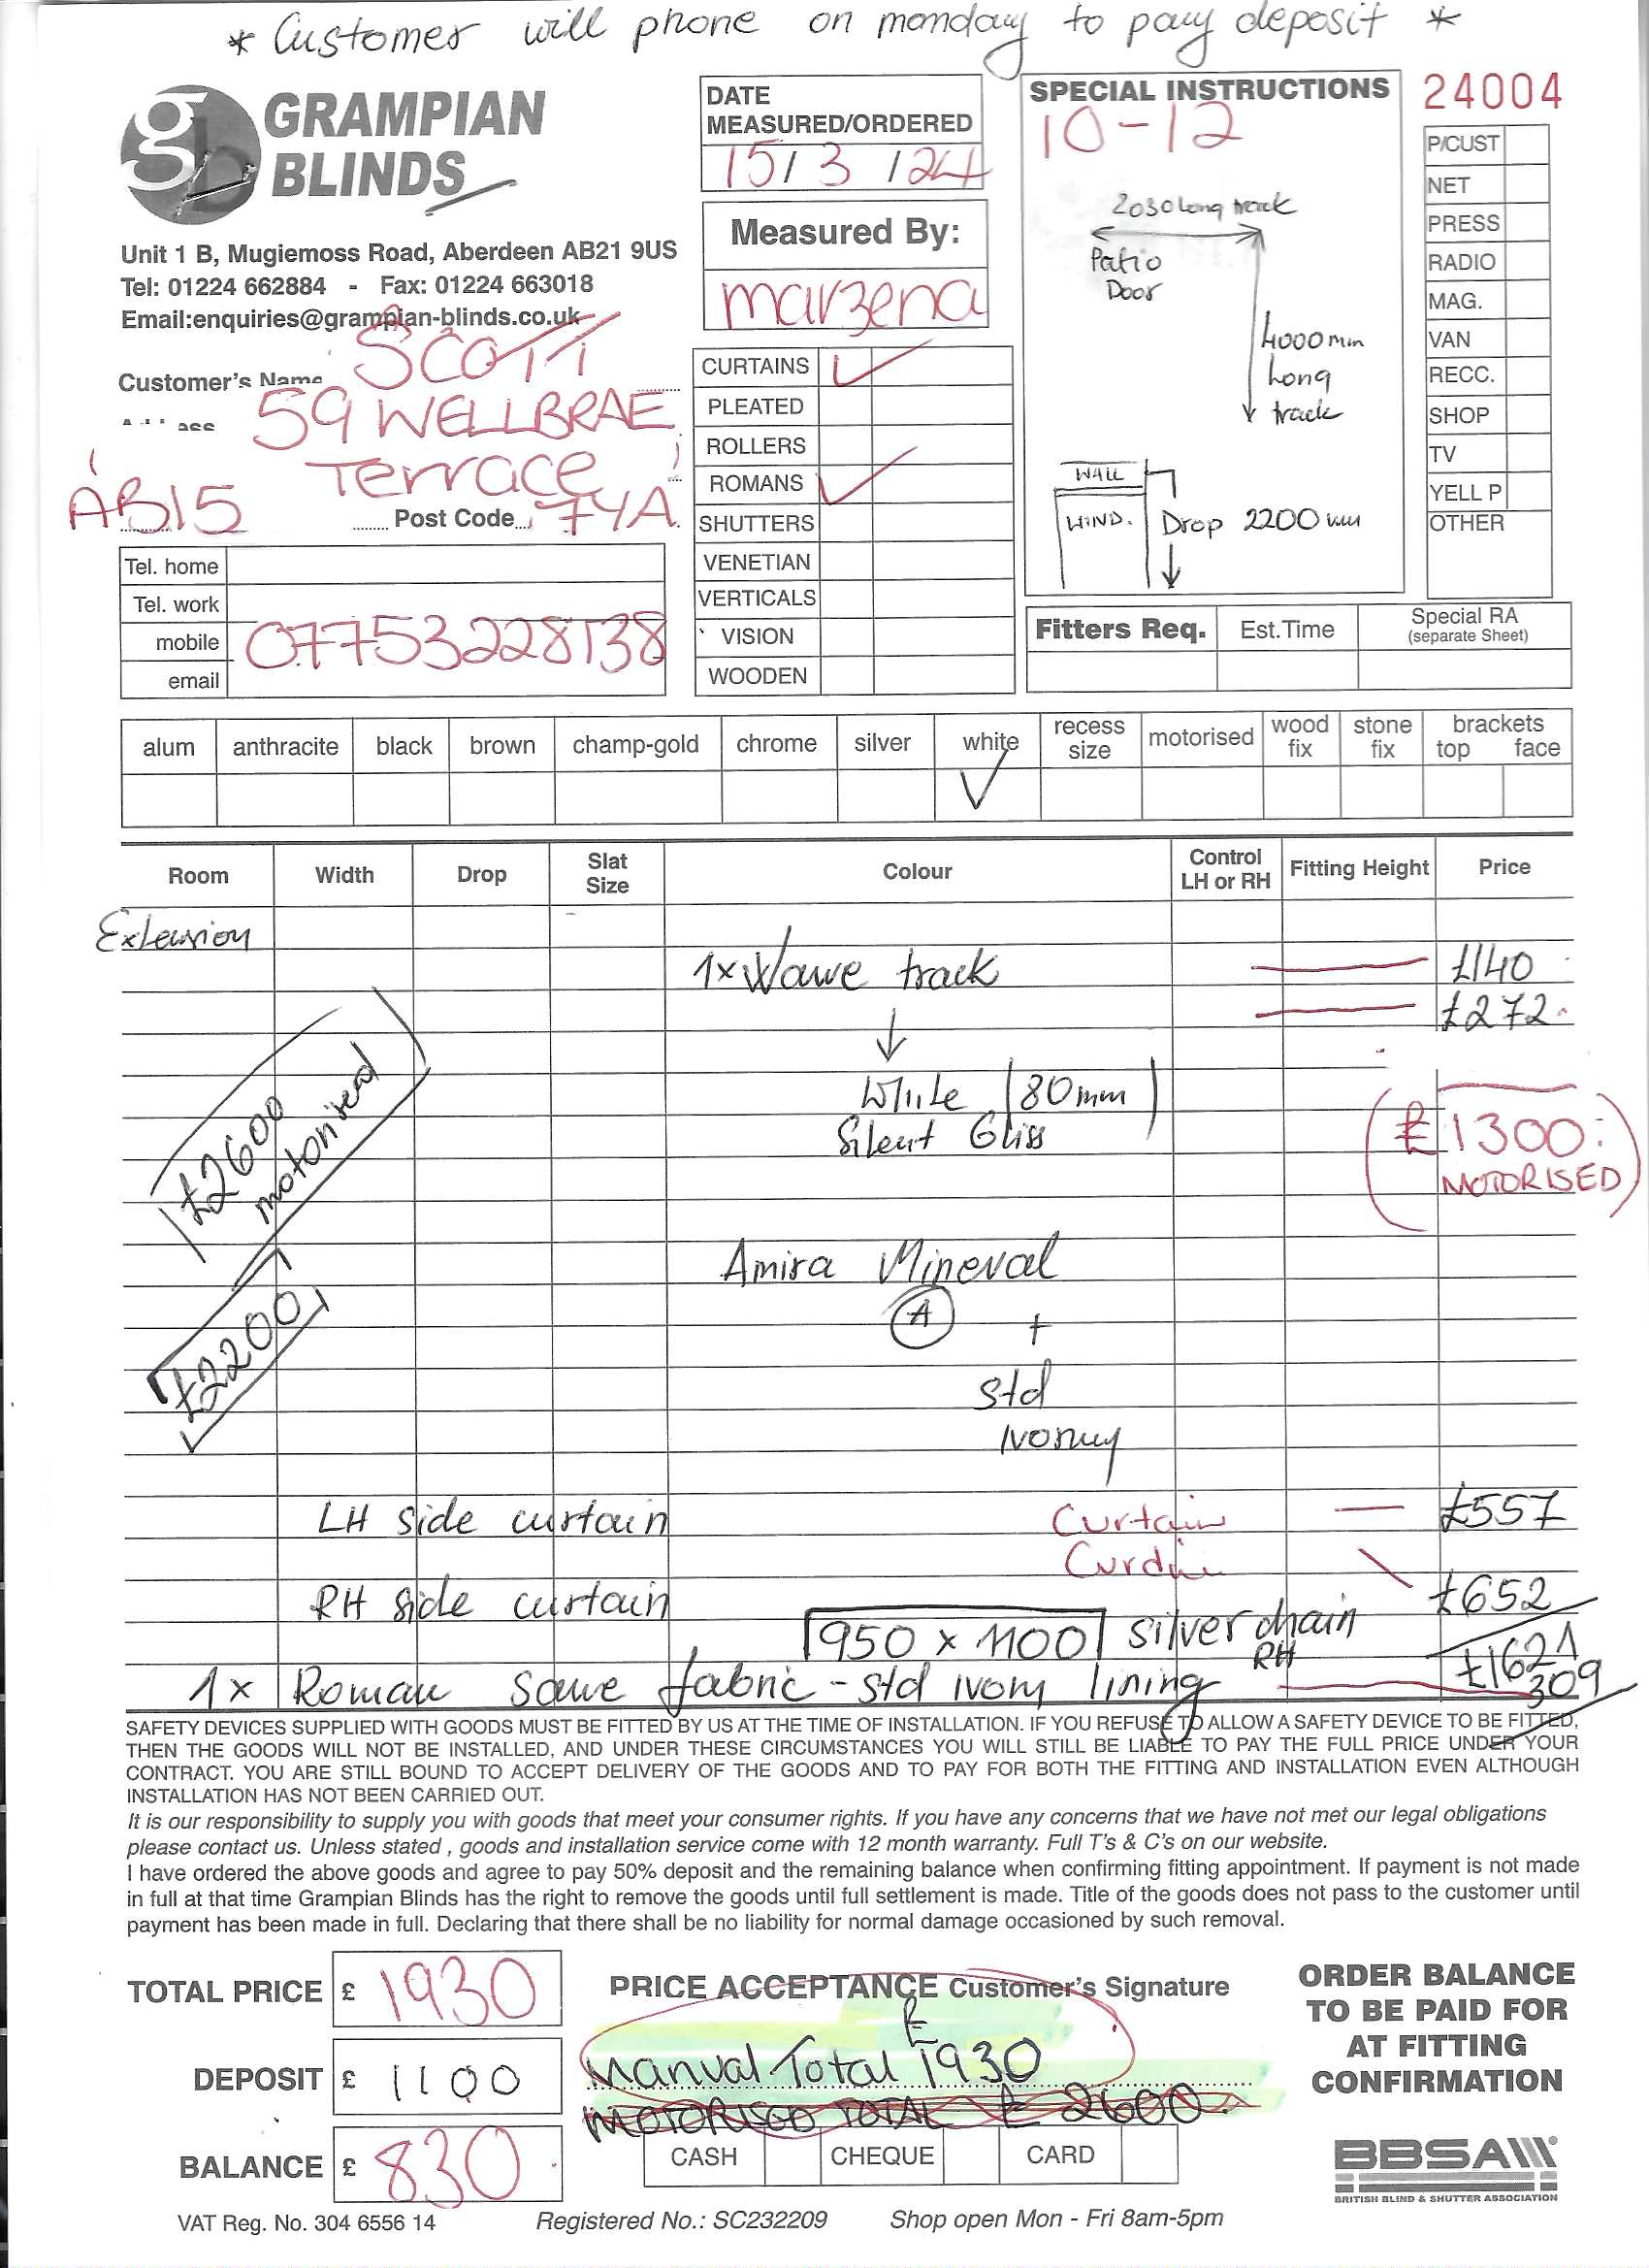 * Customer will phone on monday to pay deposit *
gb GRAMPIAN
BLINDS
Unit 1 B, Mugiemoss Road, Aberdeen AB21 9US
Tel: 01224 662884 - Fax: 01224 663018
Email:enquiries@grampian-blinds.co.uk
Customer's Name SCOTT
59 WELLBRAE
Terrace
AB15 Post Code 7YA
Tel. home
Tel. work
mobile 07753228138
email
DATE
MEASURED/ORDERED
15/3/24
Measured By:
marzena
CURTAINS ✓
PLEATED
ROLLERS
ROMANS ✓
SHUTTERS
VENETIAN
VERTICALS
VISION
WOODEN
SPECIAL INSTRUCTIONS
10-12
2030 long track
Patio
Door
4000mm
long
track
WALL
WIND. Drop 2200mm
24004
P/CUST
NET
PRESS
RADIO
MAG.
VAN
RECC.
SHOP
TV
YELL P
OTHER
Fitters Req. Est.Time Special RA
(separate Sheet)
alum anthracite black brown champ-gold chrome silver white recess size motorised wood fix stone fix brackets top face
✓
Room Width Drop Slat Size Colour Control LH or RH Fitting Height Price
Extension
1x Wawe track £140
£272
White (80mm)
Silent Gliss
£1300
MOTORISED
£2600
motorised
£2200
Amira Mineral
A +
Std
Ivory
LH side curtain Curtain £557
RH side curtain £652
950 x 1100 silver chain
RH
£1621
1x Roman same fabric - std ivory lining 309
SAFETY DEVICES SUPPLIED WITH GOODS MUST BE FITTED BY US AT THE TIME OF INSTALLATION. IF YOU REFUSE TO ALLOW A SAFETY DEVICE TO BE FITTED,
THEN THE GOODS WILL NOT BE INSTALLED, AND UNDER THESE CIRCUMSTANCES YOU WILL STILL BE LIABLE TO PAY THE FULL PRICE UNDER YOUR
CONTRACT. YOU ARE STILL BOUND TO ACCEPT DELIVERY OF THE GOODS AND TO PAY FOR BOTH THE FITTING AND INSTALLATION EVEN ALTHOUGH
INSTALLATION HAS NOT BEEN CARRIED OUT.
It is our responsibility to supply you with goods that meet your consumer rights. If you have any concerns that we have not met our legal obligations
please contact us. Unless stated , goods and installation service come with 12 month warranty. Full T's & C's on our website.
I have ordered the above goods and agree to pay 50% deposit and the remaining balance when confirming fitting appointment. If payment is not made
in full at that time Grampian Blinds has the right to remove the goods until full settlement is made. Title of the goods does not pass to the customer until
payment has been made in full. Declaring that there shall be no liability for normal damage occasioned by such removal.
TOTAL PRICE £ 1930
DEPOSIT £ 1100
BALANCE £ 830
PRICE ACCEPTANCE Customer's Signature
Manual Total £ 1930
MOTORISED TOTAL £ 2600
CASH CHEQUE CARD
ORDER BALANCE
TO BE PAID FOR
AT FITTING
CONFIRMATION
BBSA
BRITISH BLIND & SHUTTER ASSOCIATION
VAT Reg. No. 304 6556 14 Registered No.: SC232209 Shop open Mon - Fri 8am-5pm